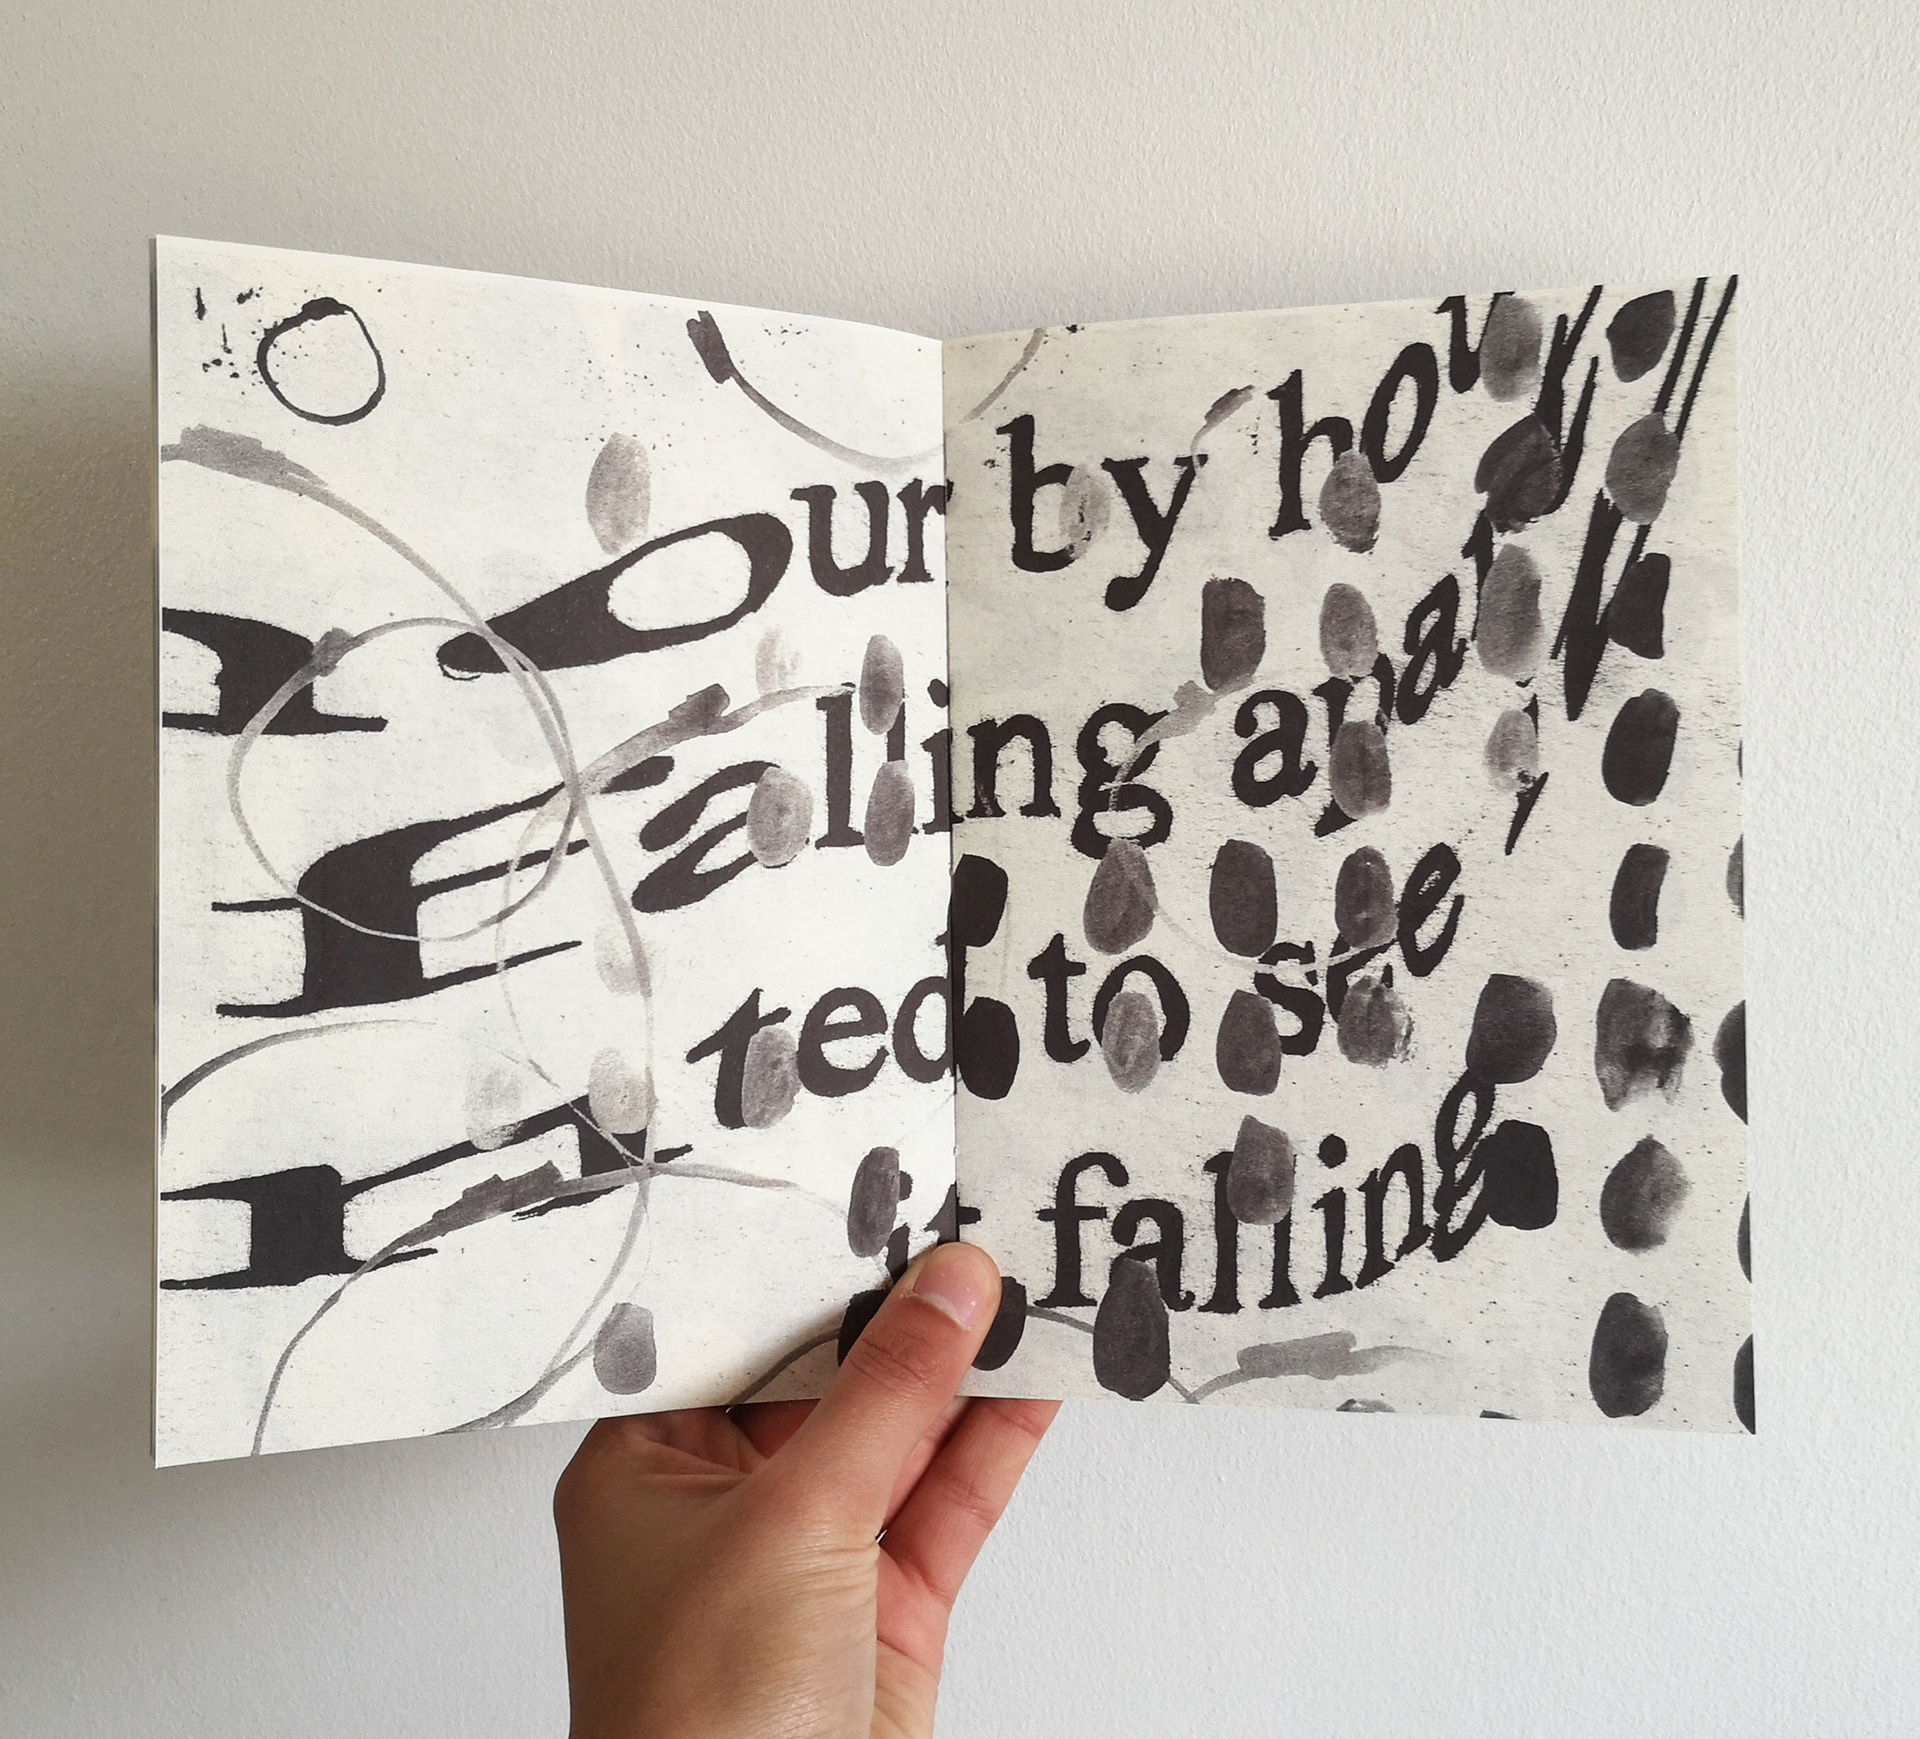 hour by hour
Falling apart,
ted to see
it falling